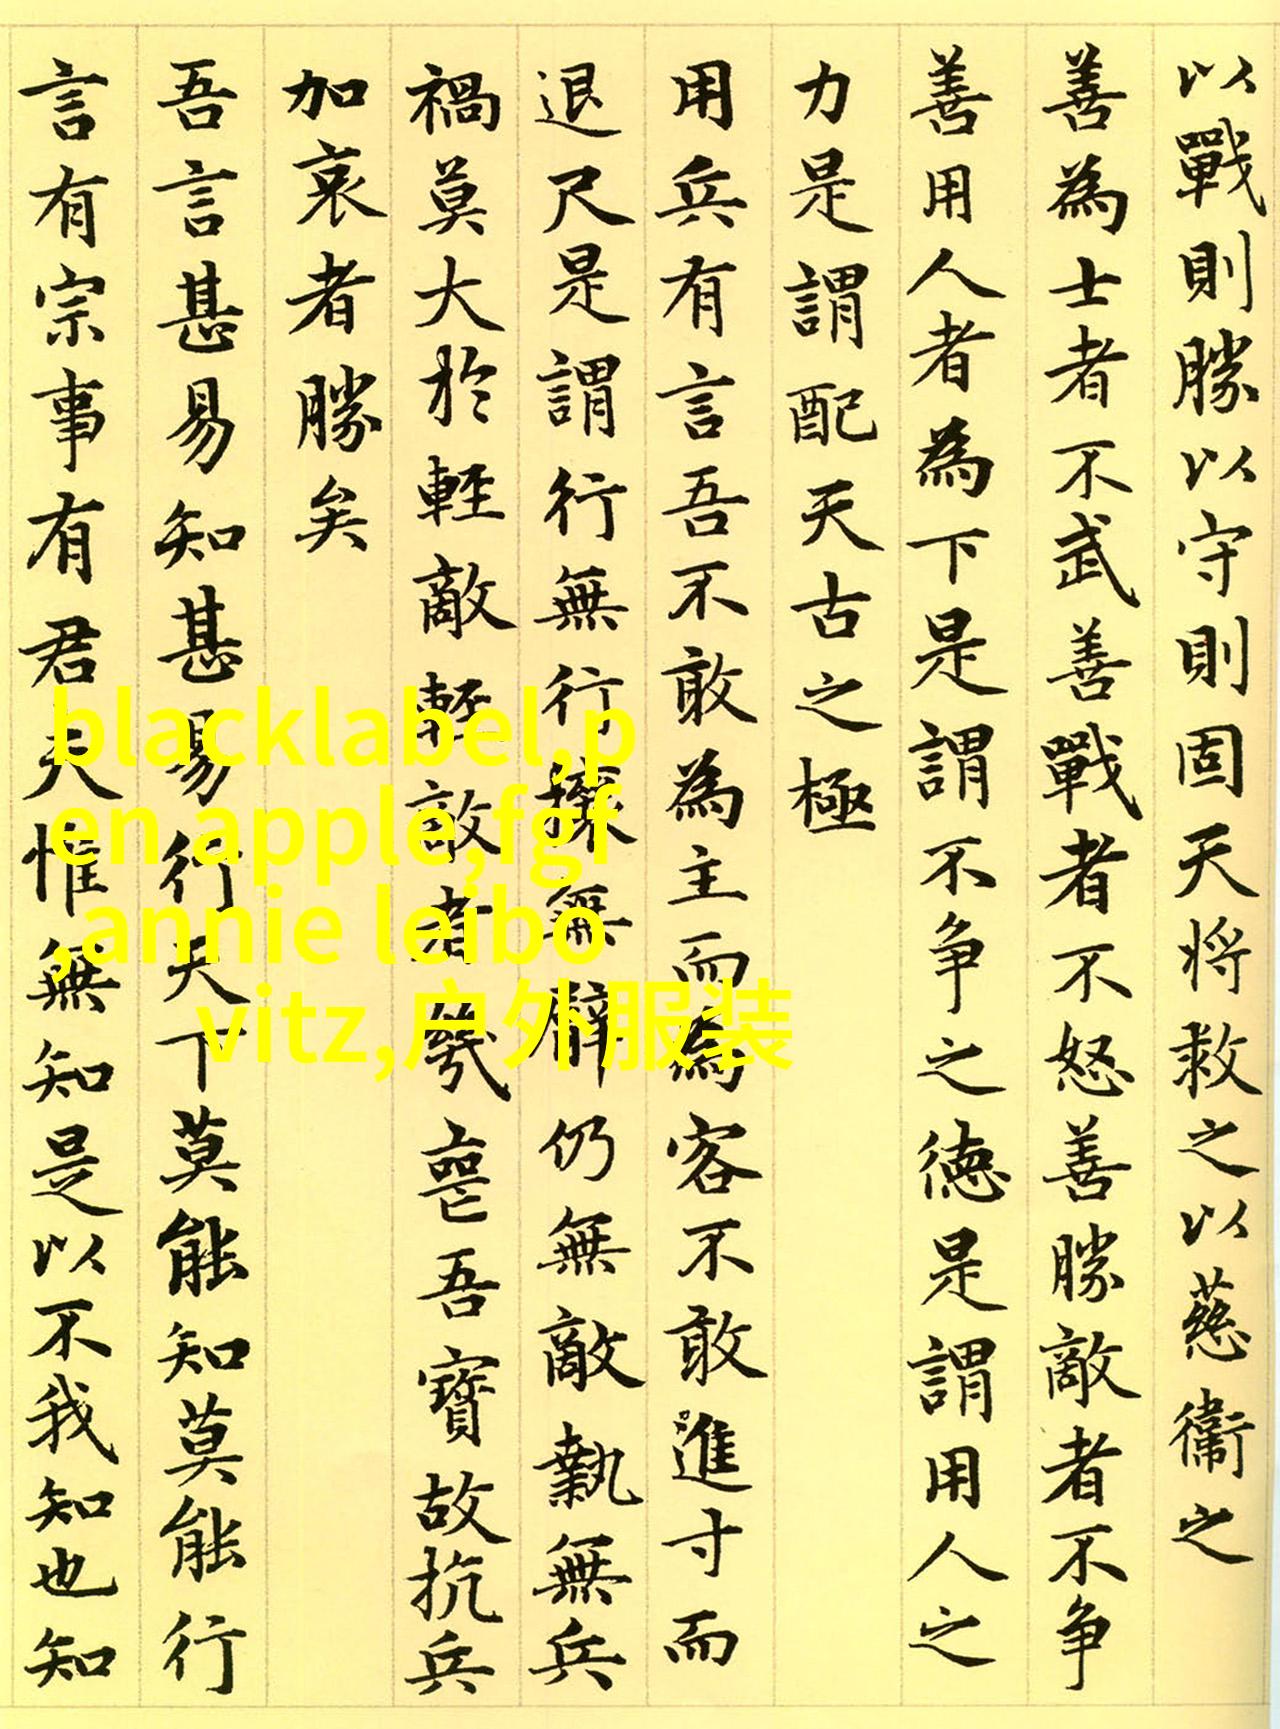 以戰則勝以守則固天將救之以慈衛之
善為士者不武善戰者不怒善勝敵者不争
善用人者為下是謂不争之德是謂用人之
力是謂配天古之極
用兵有言吾不敢為主而為客不敢進寸而
退尺是謂行無行攘無臂仍無敵執無兵
禍莫大於輕敵輕敵者幾喪吾寶故抗兵
加哀者勝矣
吾言甚易知甚易行天下莫能知莫能行
言有宗事有君夫惟無知是以不我知也知
blacklabel,p
en apple,fgf
,annie leibo
vitz,户外服装